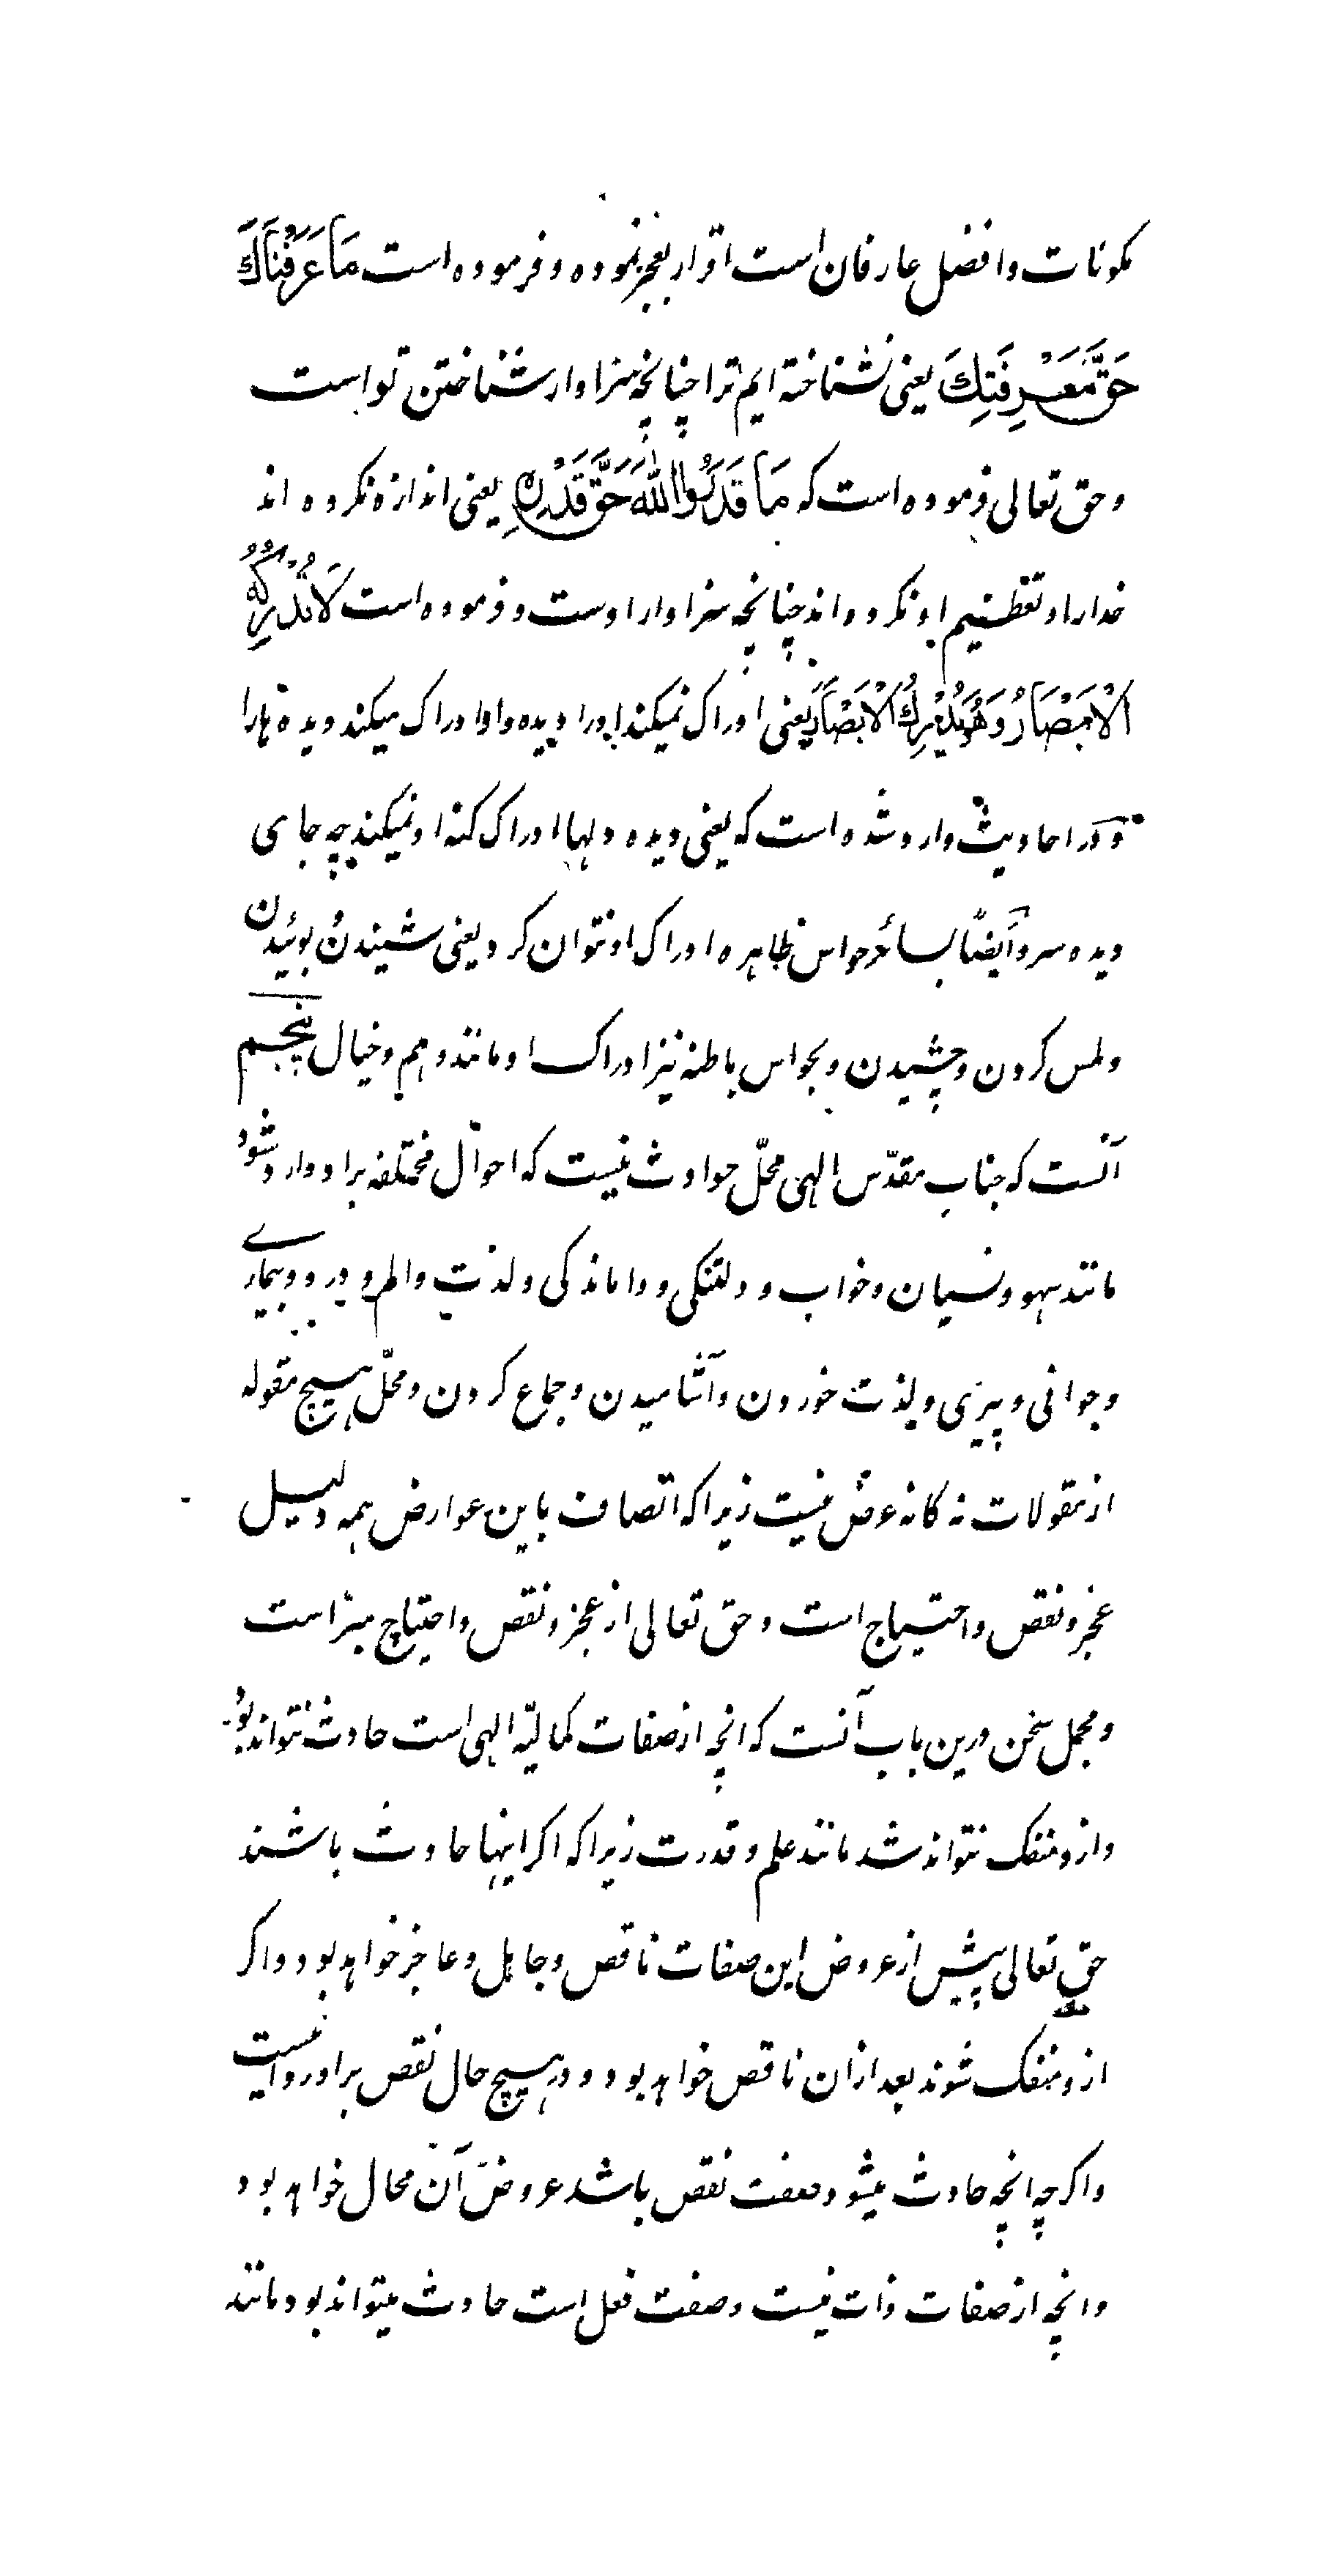 مکونات و افضل عارفان است اقرار بعجز نموده و فرموده است مَا عَرَفْنَاكَ
حَقَّ مَعْرِفَتِكَ یعنی نشناخته ایم ترا چنانچه سزاوار شناختن تو است
و حق تعالی فرموده است که مَا قَدَرُوا اللهَ حَقَّ قَدْرِهِ یعنی اندازه نکرده اند
خدا را و تعظیم او نکرده اند چنانچه سزاوار اوست و فرموده است لَا تُدْرِكُهُ
الْاَبْصَارُ وَهُوَ يُدْرِكُ الْاَبْصَارَ یعنی ادراک نمیکند او را دیده و او ادراک میکند دیده ها را
و در احادیث وارد شده است که یعنی دیده دلها ادراک کنه او نمیکند چه جای
دیده سر و أیضاً بسائر حواس ظاهره ادراک او نتوان کرد یعنی شنیدن و بوئیدن
و لمس کردن و چشیدن و بحواس باطنه نیز ادراک او مانند وهم و خیال پنجم
آنست که جناب مقدّس الهی محلّ حوادث نیست که احوال مختلفه بر او وارد شود
مانند سهو و نسیان و خواب و دلتنکی و واماندکی و لذت و الم و درد و بیماری
و جوانی و پیری و لذت خوردن و آشامیدن و جماع کردن و محلّ هیچ مقوله
از مقولات نه کانه عرض نیست زیرا که اتصاف باین عوارض همه دلیل
عجز و نقص و احتیاج است و حق تعالی از عجز و نقص و احتیاج مبرّاست
و مجمل سخن درین باب آنست که انچه از صفات کمالیّه الهی است حادث نتواند بود
و ازو منفک نتواند شد مانند علم و قدرت زیرا که اکر اینها حادث باشند
حق تعالی پیش از عروض این صفات ناقص و جاهل و عاجز خواهد بود و اکر
ازو منفک شوند بعد ازان ناقص خواهد بود و در هیچ حال نقص بر او روا نیست
و اکرچه انچه حادث میشود صفت نقص باشد عروض آن محال خواهد بود
و انچه از صفات ذات نیست و صفت فعل است حادث میتواند بود مانند